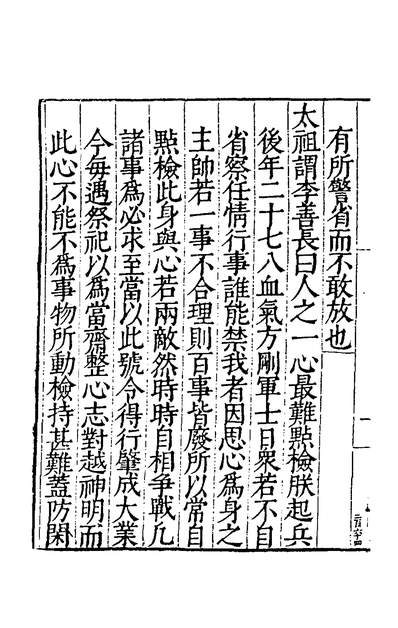 有所警省而不敢放也
太祖謂李善長曰人之一心最難㸃檢朕起兵
後年二十七八血氣方剛軍士日衆若不自
省察任情行事誰能禁我者因思心為身之
主帥若一事不合理則百事皆廢所以常自
㸃檢此身與心若兩敵然時時自相爭戰凡
諸事為必求至當以此號令得行肇成大業
今每遇祭祀以為當齋整心志對越神明而
此心不能不為事物所動檢持甚難蓋防閑